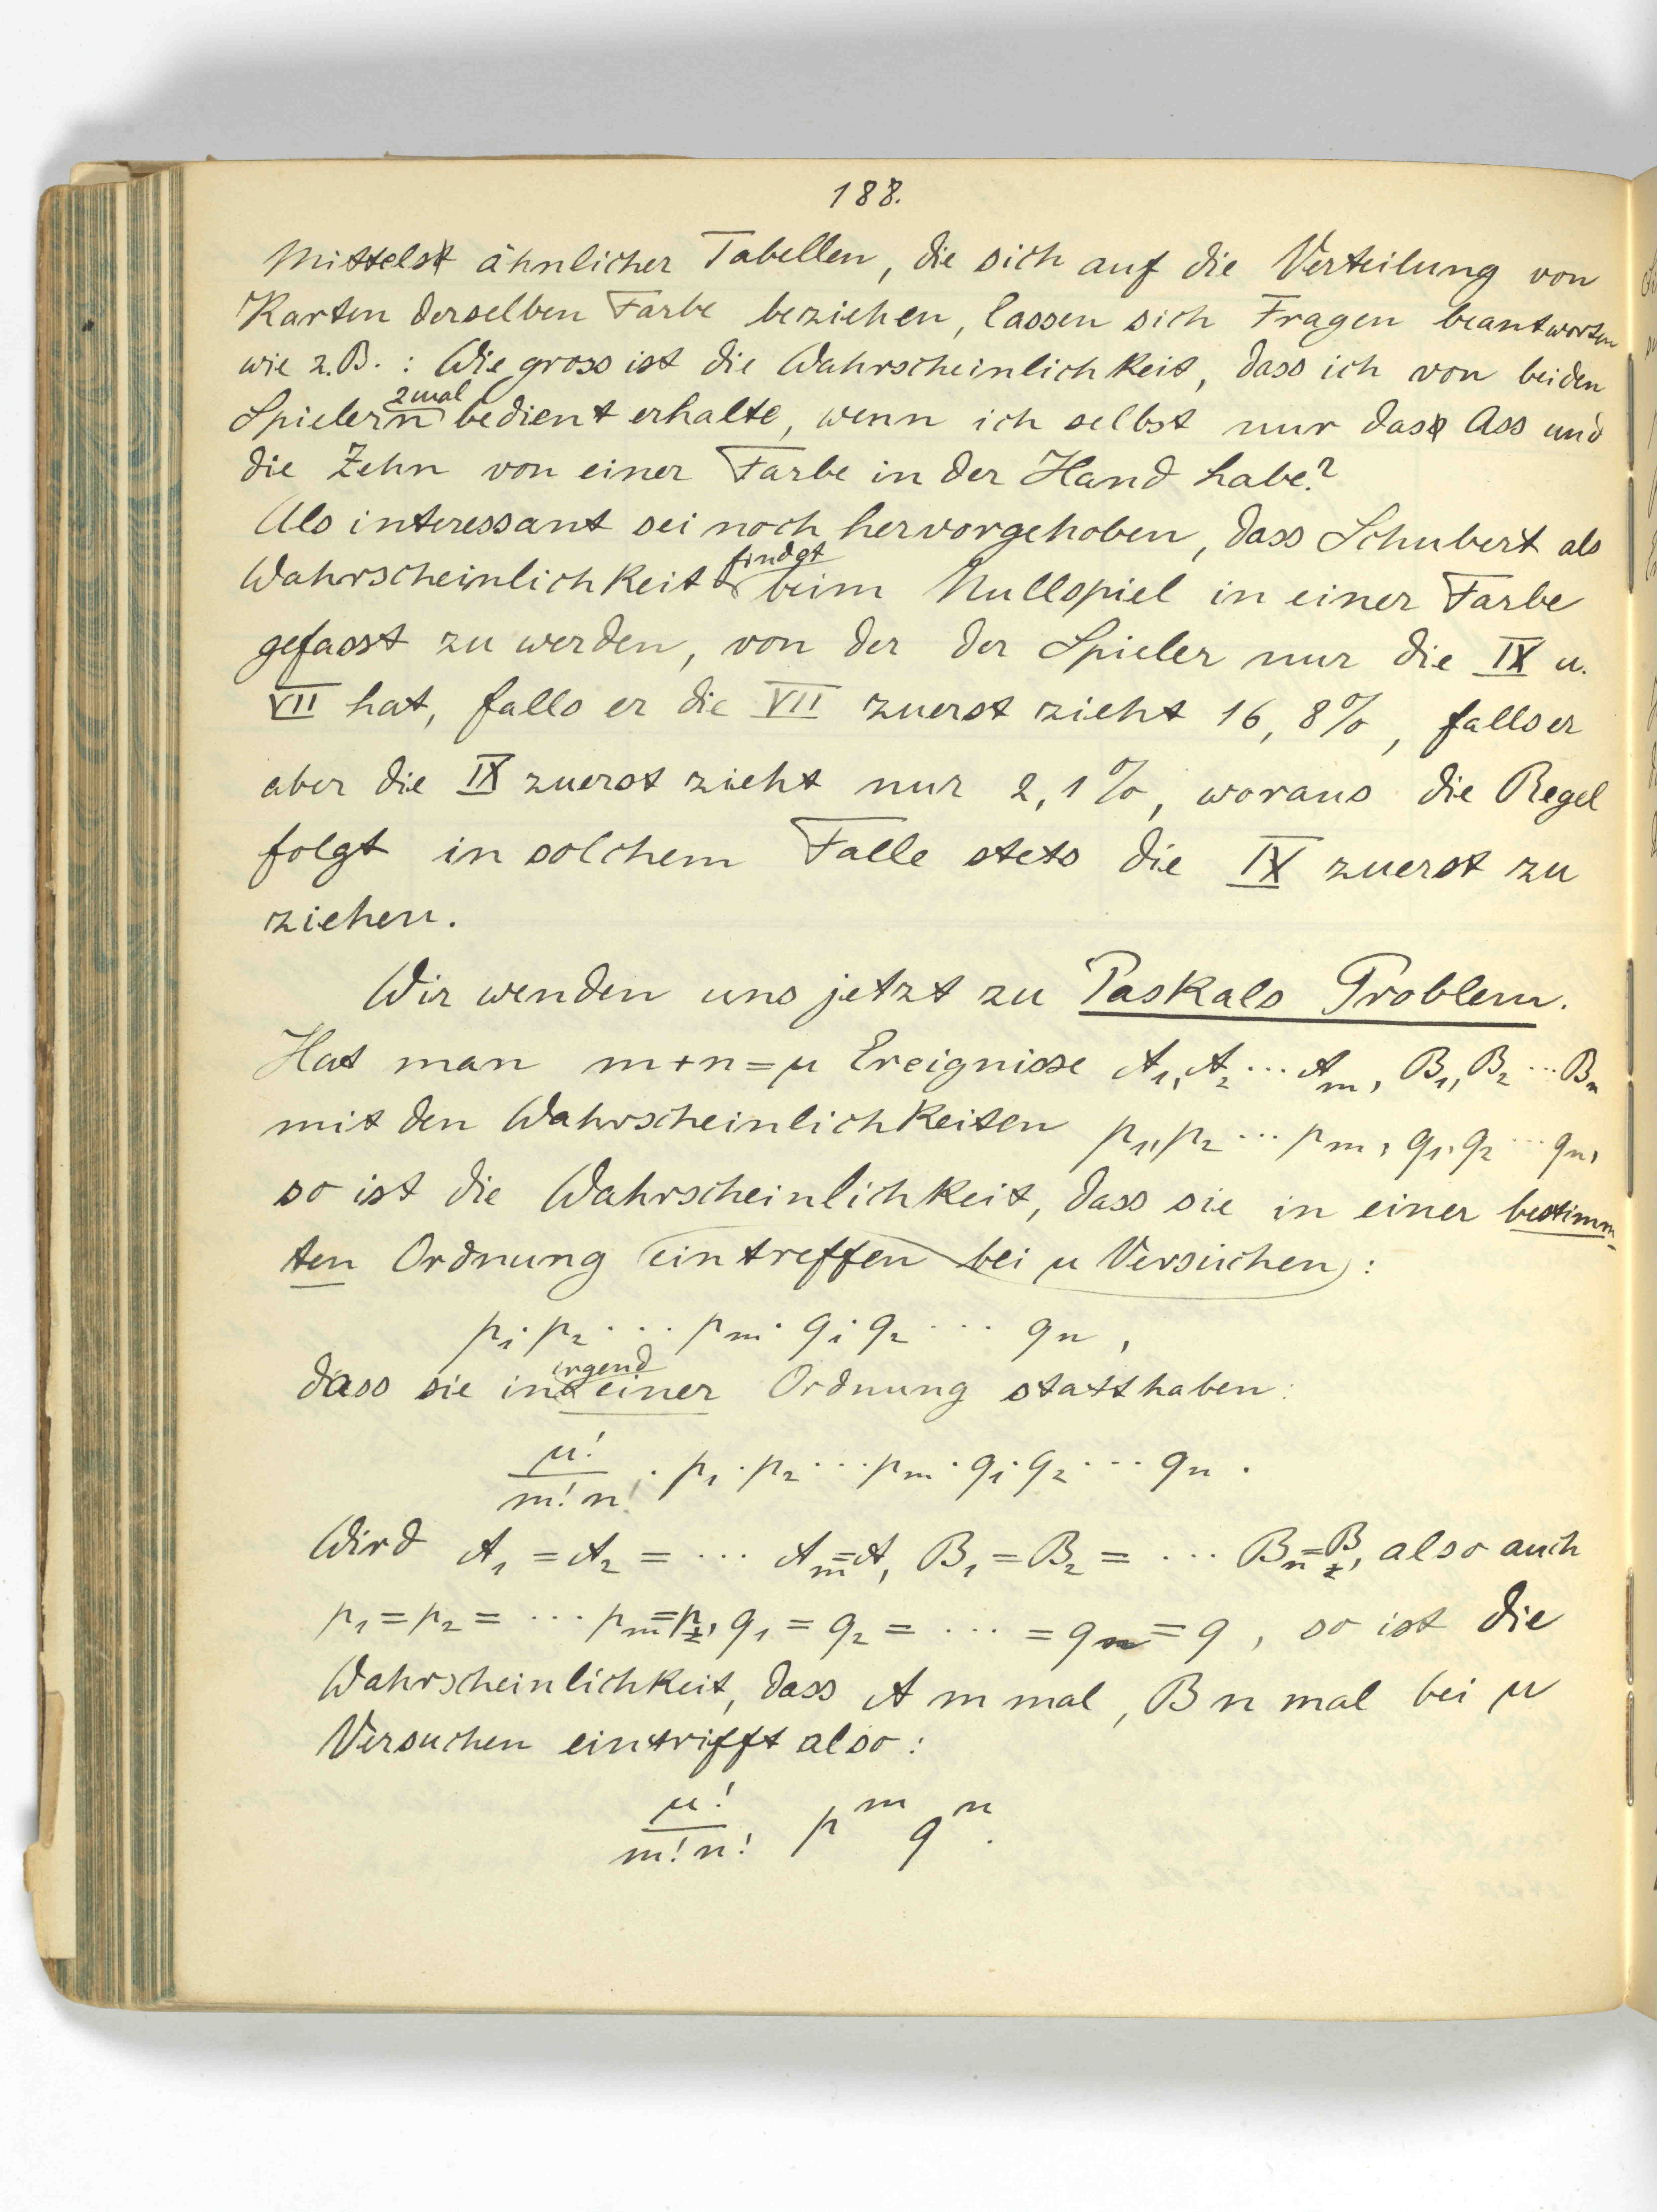 188.
Mittelst ähnlicher Tabellen, die sich auf die Verteilung von
Karten derselben Farbe beziehen, lassen sich Fragen beantworten
wie z.B. : Wie gross ist die Wahrscheinlichkeit, dass ich von beiden
2mal
Spielern bedient erhalte, wenn ich selbst nur das Ass und
die Zehn von einer Farbe in der Hand habe?
Als interessant sei noch hervorgehoben, dass Schubert als
findet
Wahrscheinlichkeit beim Nullspiel in einer Farbe
gefasst zu werden, von der der Spieler nur die IX u.
VII hat, falls er die VII zuerst zieht 16,8%, falls er
aber die IX zuerst zieht nur 2,1%, woraus die Regel
folgt in solchem Falle stets die IX zuerst zu
ziehen.
Wir wenden uns jetzt zu Paskals Problem.
Hat man m+n=μ Ereignisse A₁, A₂ ··· Aₘ, B₁, B₂ ··· Bₙ
mit den Wahrscheinlichkeiten p₁, p₂ ··· pₘ, q₁, q₂ ··· qₙ,
so ist die Wahrscheinlichkeit, dass sie in einer bestimm-
ten Ordnung eintreffen bei μ Versuchen :
p₁·p₂ ··· pₘ·q₁·q₂ ··· qₙ,
irgend
dass sie in einer Ordnung statthaben:
μ!/m!n! · p₁·p₂ ··· pₘ·q₁·q₂ ··· qₙ.
Wird A₁ = A₂ = ··· Aₘ=A, B₁ = B₂ = ··· Bₙ=B, also auch
p₁ = p₂ = ··· pₘ=p, q₁ = q₂ = ··· = qₙ = q, so ist die
Wahrscheinlichkeit, dass A m mal, B n mal bei μ
Versuchen eintrifft also :
μ!/m!n! pᵐ qⁿ.